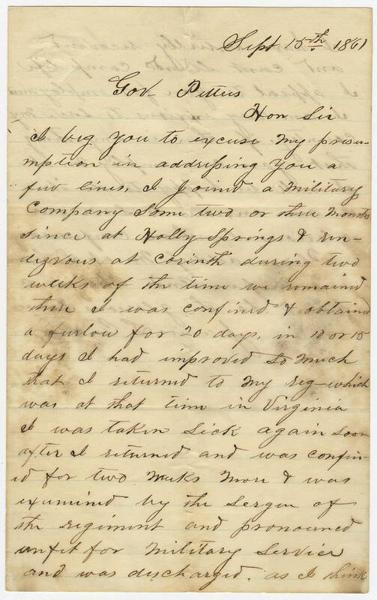 Sept 15th. 1861
Gov. Pettus
Hon Sir
I beg you to excuse my presu-
mption in addressing you a
few lines, I joined a Military
Company some two or three Months
since at Holly Springs & ren-
dezvous at Corinth during two
weeks of the time we remained
there I was confined & obtained
a furlow for 20 days, in 10 or 15
days I had improved so much
that I returned to my reg - which
was at that time in Virginia
I was taken sick again soon
after I returned and was confin-
ed for two weeks more & was
examined by the Sergen of
the regiment and pronounced
unfit for Military Service
and was discharged. as I think